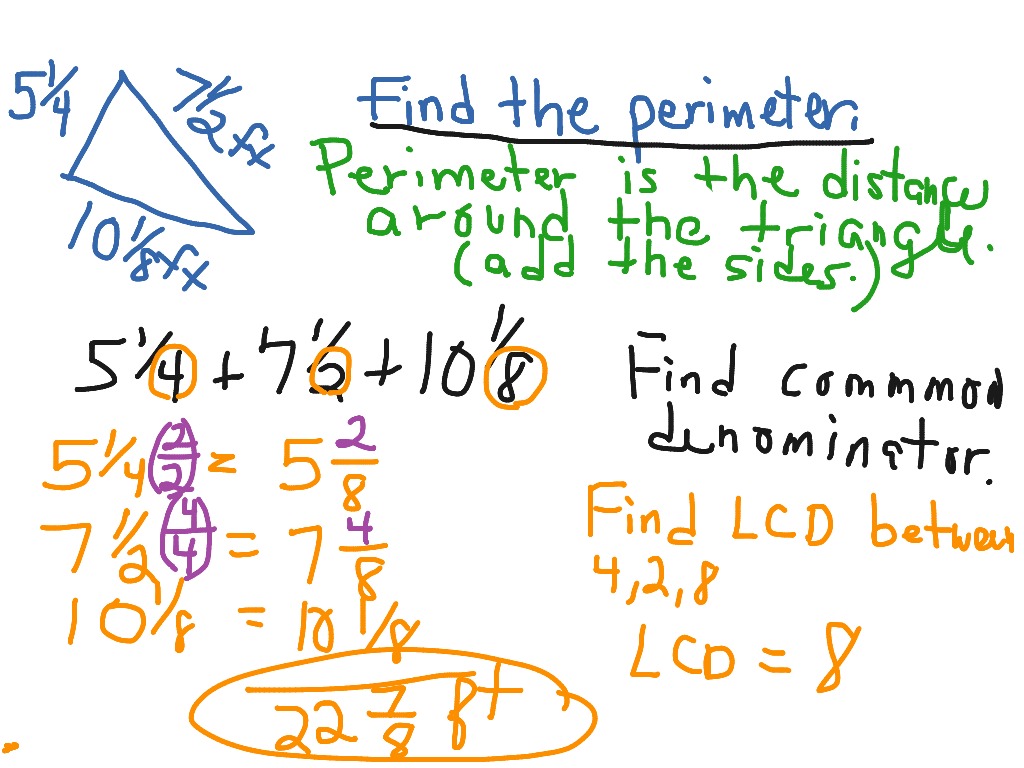 5 1/4
7 1/2 ft
10 1/8 ft
Find the perimeter.
Perimeter is the distance
around the triangle.
(add the sides.)
5 1/4 + 7 1/2 + 10 1/8
Find common
denominator.
5 1/4 (2/2) = 5 2/8
7 1/2 (4/4) = 7 4/8
10 1/8 = 10 1/8
22 7/8 ft
Find LCD between
4, 2, 8
LCD = 8